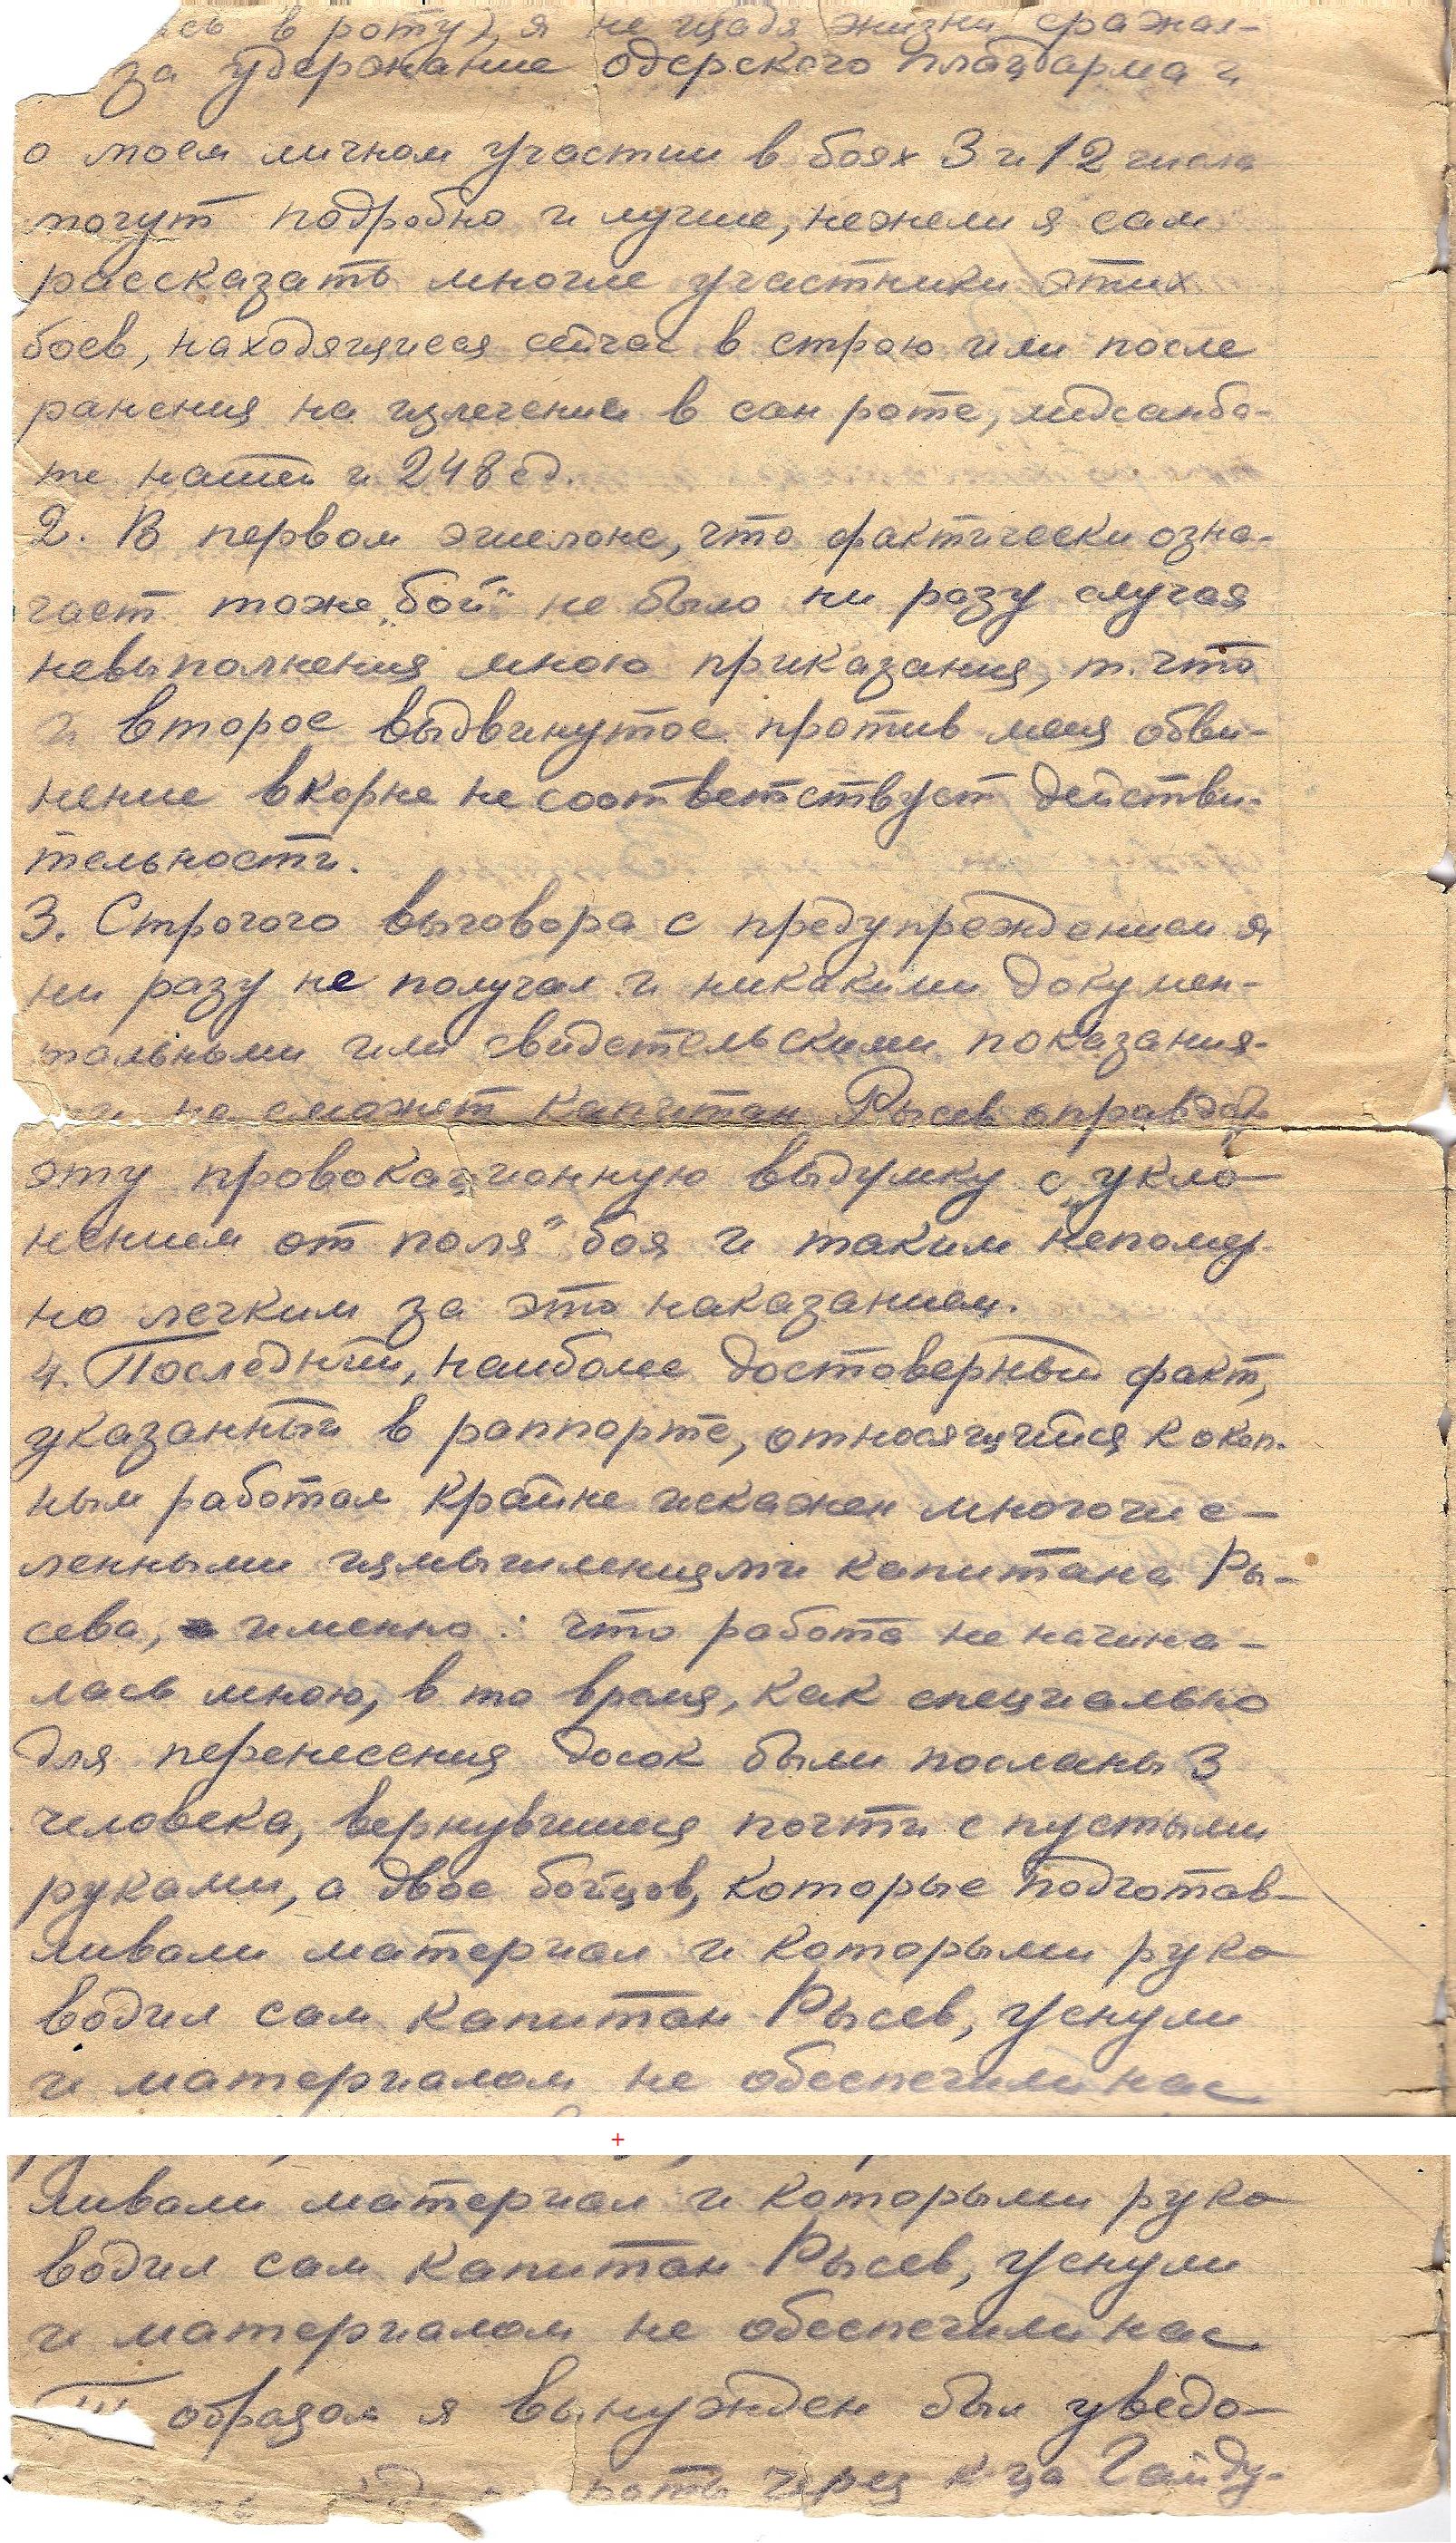 ись в роту), я не щадя жизни сражал-
за удержание одерского плацдарма и
о моем личном участии в боях 3 и 12 числа
могут подробно и лучше, нежели я сам
рассказать многие участники этих
боев, находящиеся сейчас в строю или после
ранения на излечении в сан роте, медсанба-
те нашей и 248 сд.
2. В первом эшелоне, что фактически озна-
чает тоже „бой" не было ни разу случая
невыполнения мною приказания, т. что
и второе выдвинутое против меня обви-
нение вкорне не соответствует действи-
тельности.
3. Строгого выговора с предупреждением я
ни разу не получал и никакими докумен-
тальными или свидетельскими показания-
ми не сможет капитан Рысев оправдать
эту провокационную выдумку с „укло-
нением от поля" боя и таким непомер-
но легким за это наказанием.
4. Последний, наиболее достоверный факт,
указанный в раппорте, относящийся к окоп-
ным работам крайне искажен многочис-
ленными измышлениями капитана Ры-
сева, а именно: что работа не начина-
лась мною, в то время, как специально
для перенесения досок были посланы 3
человека, вернувшиеся почти с пустыми
руками, а двое бойцов, которые подготав-
ливали материал и которыми руко
водил сам капитан Рысев, уснули
и материалом не обеспечили нас
+
ливали материал и которыми руко
водил сам капитан Рысев, уснули
и материалом не обеспечили нас
образом я вынужден был уведо-
роты через к-ца Гайду-